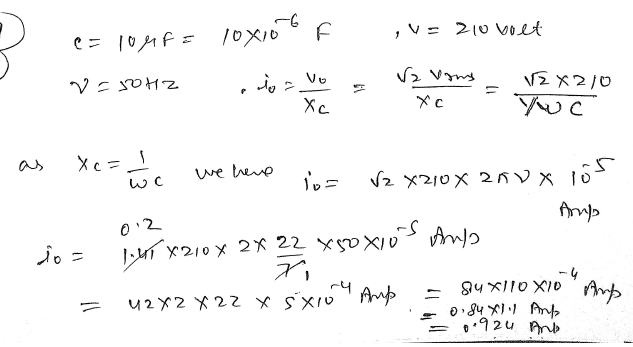 c = 10μF = 10×10⁻⁶ F , V = 210 volt
ν = 50HZ . i₀ = V₀/Xc = √2 Vrms/Xc = √2 × 210/(1/ωC)
as Xc = 1/ωC we have i₀ = √2 × 210 × 2πν × 10⁻⁵ Amp
i₀ = 0.2 1.41 × 210 × 2 × 22/7 × 50 × 10⁻⁵ Amp
= 42 × 2 × 22 × 5 × 10⁻⁴ Amp . = 84 × 110 × 10⁻⁴ Amp
= 0.84 × 1.1 Amp
= 0.924 Amp